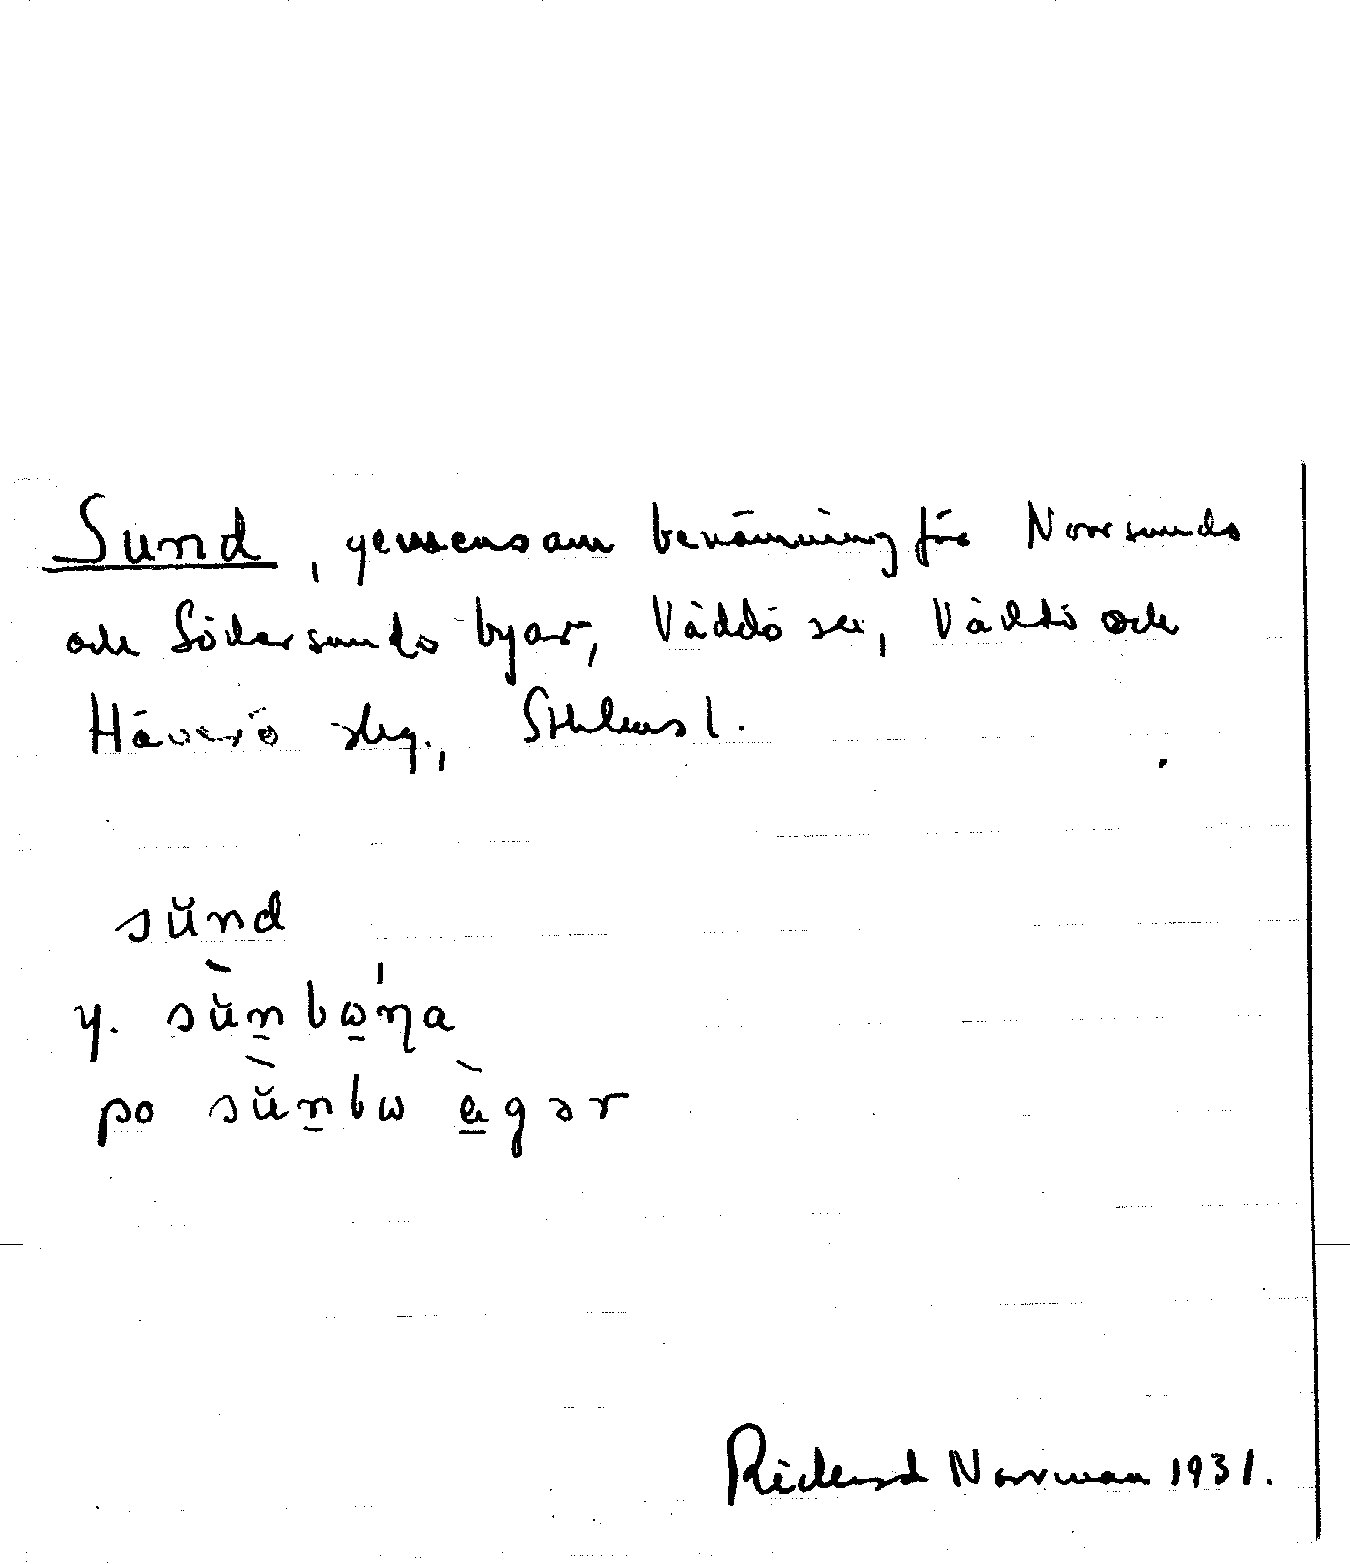 Sund, gemensam benämning för Norrsunds
och Södersunds byar, Väddö sn, Väddö och
Häverö skg., Sthlms l.
sŭnd
y. sŭ̀n̲bώ̲ŋa
po sŭ̀n̲bω à̲gər
Richard Norrman 1931.